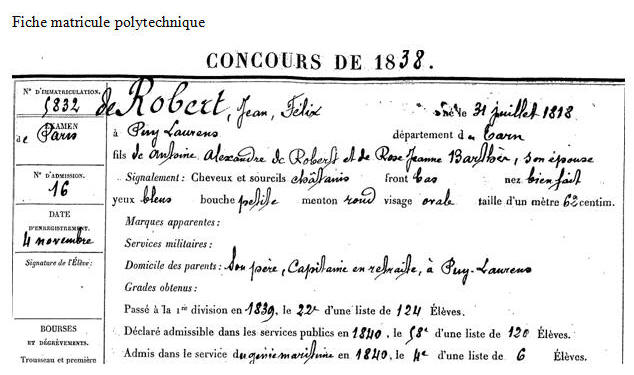 Fiche matricule polytechnique
CONCOURS DE 1838.
N° D'IMMATRICULATION.
5832
EXAMEN
de Paris
N° D'ADMISSION.
16
DATE
D'ENREGISTREMENT.
4 novembre
Signature de l'Élève :
BOURSES
ET DÉGRÈVEMENTS.
Trousseau et première
de Robert, Jean, Félix né le 31 juillet 1818
à Puy Laurens département du Tarn
fils de Antoine Alexandre de Robert et de Rose Jeanne Barther, son épouse
Signalement : Cheveux et sourcils châtains front bas nez bien fait
yeux bleus bouche petite menton rond visage ovale taille d'un mètre 62 centim.
Marques apparentes :
Services militaires :
Domicile des parents : Son père, Capitaine en retraite, à Puy-Laurens
Grades obtenus :
Passé à la 1re division en 1839, le 22e d'une liste de 124 Élèves.
Déclaré admissible dans les services publics en 1840, le 58e d'une liste de 120 Élèves.
Admis dans le service du génie maritime en 1840, le 4e d'une liste de 6 Élèves.